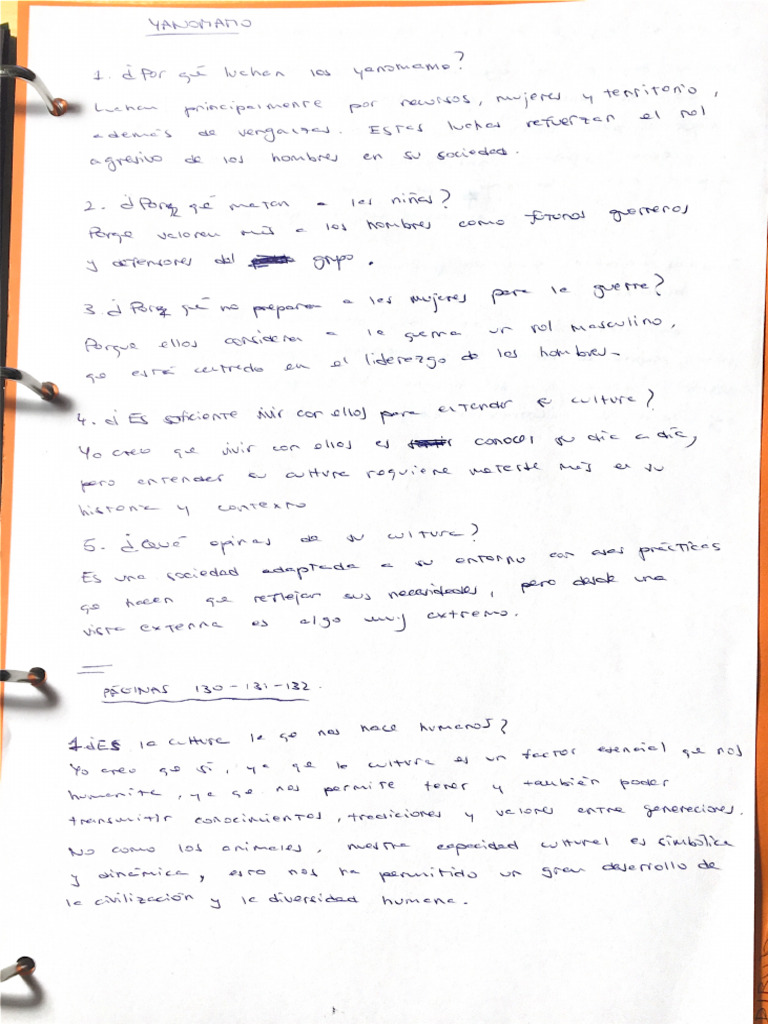 YANOMAMO
1. ¿Por qué luchan los yanomamo?
Luchan principalmente por recursos, mujeres y territorio,
además de venganzas. Estas luchas refuerzan el rol
agresivo de los hombres en su sociedad.
2. ¿Porq qué matan a las niñas?
Porqe valoran más a los hombres como futuros guerreros
y defensores del grupo.
3. ¿Porq qué no preparan a las mujeres para la guerra?
Porque ellos consideran a la guerra un rol masculino,
que está centrado en el liderazgo de los hombres.
4. ¿Es suficiente vivir con ellos para entender su cultura?
Yo creo que vivir con ellos es conocer su día a día,
pero entender su cultura requiere meterte más en su
historia y contexto
5. ¿Qué opinas de su cultura?
Es una sociedad adaptada a su entorno con esas prácticas
qe hacen que reflejar sus necesidades, pero desde una
vista externa es algo muy extremo.
PÁGINAS 130-131-132.
1. ¿Es la cultura lo qe nos hace humanos?
Yo creo qe sí, ya que la cultura es un factor esencial que nos
humaniza, ya qe nos permite tener y también poder
transmitir conocimientos, tradiciones y valores entre generaciones.
No como los animales, nuestra capacidad cultural es simbólica
y dinámica, esto nos ha permitido un gran desarrollo de
la civilización y la diversidad humana.